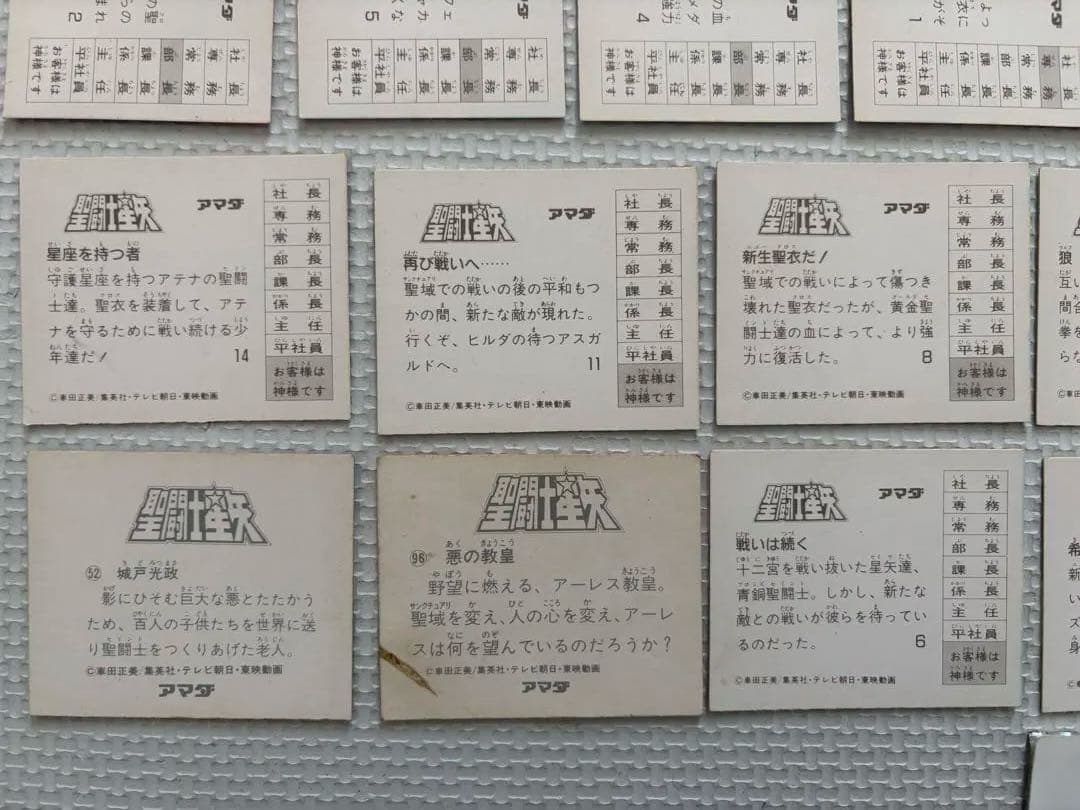 2
社長
専務
常務
部長
課長
係長
主任
平社員
お客様は
神様です
5
社長
専務
常務
部長
課長
係長
主任
平社員
お客様は
神様です
の血
メダ
強力
4
社長
専務
常務
部長
課長
係長
主任
平社員
お客様は
神様です
よっ
衣に
がそ
1
専務
常務
部長
課長
係長
主任
平社員
お客様は
神様です
聖闘士星矢
アマダ
星座を持つ者
守護星座を持つアテナの聖闘
士達。聖衣を装着して、アテ
ナを守るために戦い続ける少
年達だ!
14
©車田正美/集英社・テレビ朝日・東映動画
社長
専務
常務
部長
課長
係長
主任
平社員
お客様は
神様です
聖闘士星矢
アマダ
再び戦いへ……
聖域での戦いの後の平和もつ
かの間、新たな敵が現れた。
行くぞ、ヒルダの待つアスガ
ルドへ。
11
©車田正美/集英社・テレビ朝日・東映動画
社長
専務
常務
部長
課長
係長
主任
平社員
お客様は
神様です
聖闘士星矢
アマダ
新生聖衣だ!
聖域での戦いによって傷つき
壊れた聖衣だったが、黄金聖
闘士達の血によって、より強
力に復活した。
8
©車田正美/集英社・テレビ朝日・東映動画
社長
専務
常務
部長
課長
係長
主任
平社員
お客様は
神様です
狼
互い
間合
拳を
らな
聖闘士星矢
52 城戸光政
影にひそむ巨大な悪とたたかう
ため、百人の子供たちを世界に送
り聖闘士をつくりあげた老人。
©車田正美/集英社・テレビ朝日・東映動画
アマダ
聖闘士星矢
96 悪の教皇
野望に燃える、アーレス教皇。
聖域を変え、人の心を変え、アーレ
スは何を望んでいるのだろうか?
©車田正美/集英社・テレビ朝日・東映動画
アマダ
聖闘士星矢
アマダ
戦いは続く
十二宮を戦い抜いた星矢達、
青銅聖闘士。しかし、新たな
敵との戦いが彼らを待ってい
るのだった。
6
©車田正美/集英社・テレビ朝日・東映動画
社長
専務
常務
部長
課長
係長
主任
平社員
お客様は
神様です